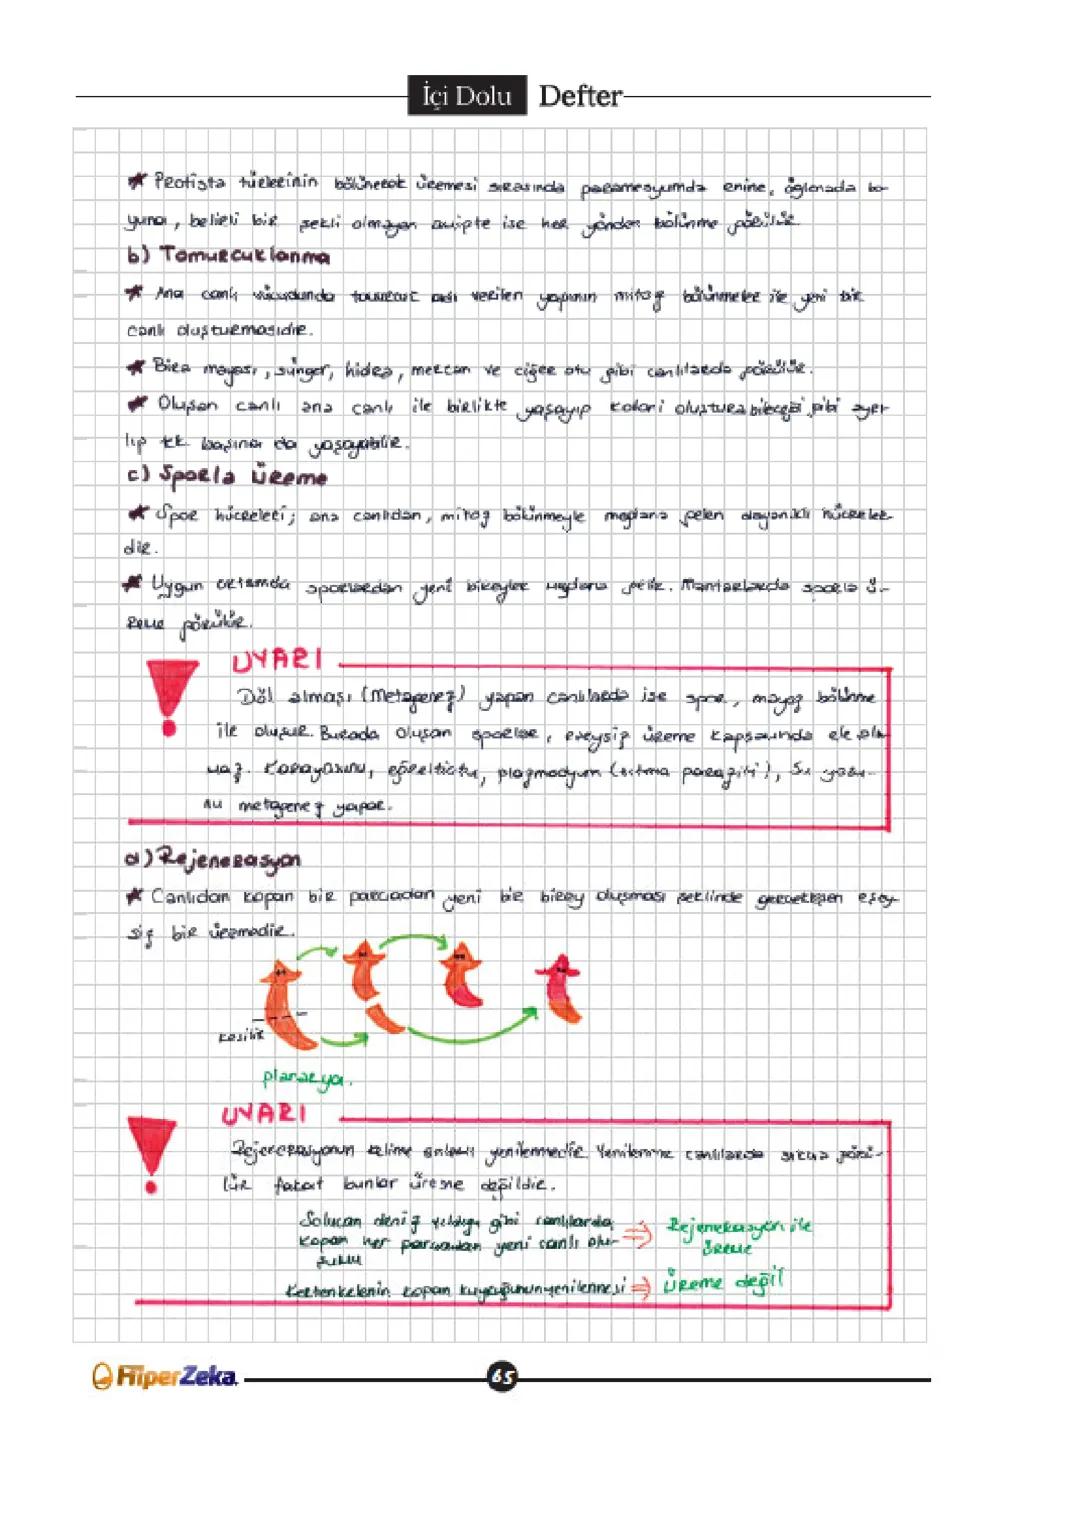 İçi Dolu Defter
★ Protista türlerinin bölünerek üremesi sırasında paramesyumda enine, öglenada bo-
yuna, belirli bir şekli olmayan amipte ise her yönden bölünme görülür.
b) Tomurcuklanma
★ Ana canlı vücudunda tomurcuk adı verilen yapının mitoz bölünmeler ile yeni bir
canlı oluşturmasıdır.
★ Bira mayası, sünger, hidra, mercan ve ciğer otu gibi canlılarda görülür.
★ Oluşan canlı ana canlı ile birlikte yaşayıp koloni oluşturabileceği gibi ayrı-
lıp tek başına da yaşayabilir.
c) Sporla üreme
★ Spor hücreleri; ana canlıdan, mitoz bölünmeyle meydana gelen dayanıklı hücreler-
dir.
★ Uygun ortamda sporlardan yeni bireyler meydana gelir. Mantarlarda sporla ü-
reme görülür.
UYARI
Döl almaşı (Metagenez) yapan canlılarda ise spor, mayoz bölünme
ile oluşur. Burada oluşan sporlar, eşeysiz üreme kapsamında ele alın-
maz. Karayosunu, eğrelti otu, plazmodyum (sıtma paraziti), su yosu-
nu metagenez yapar.
d) Rejenerasyon
★ Canlıdan kopan bir parçadan yeni bir birey oluşması şeklinde gerçekleşen eşey-
siz bir üremedir.
kesilir
planarya.
UYARI
Rejenerasyonun kelime anlamı yenilenmedir. Yenilenme canlılarda sıkça görü-
lür fakat bunlar üreme değildir.
Solucan deniz yıldızı gibi canlılarda ⇒ Rejenerasyon ile
kopan her parçadan yeni canlı olu- üreme
şumu
Kertenkelenin kopan kuyruğunun yenilenmesi ⇒ üreme değil
HiperZeka
65